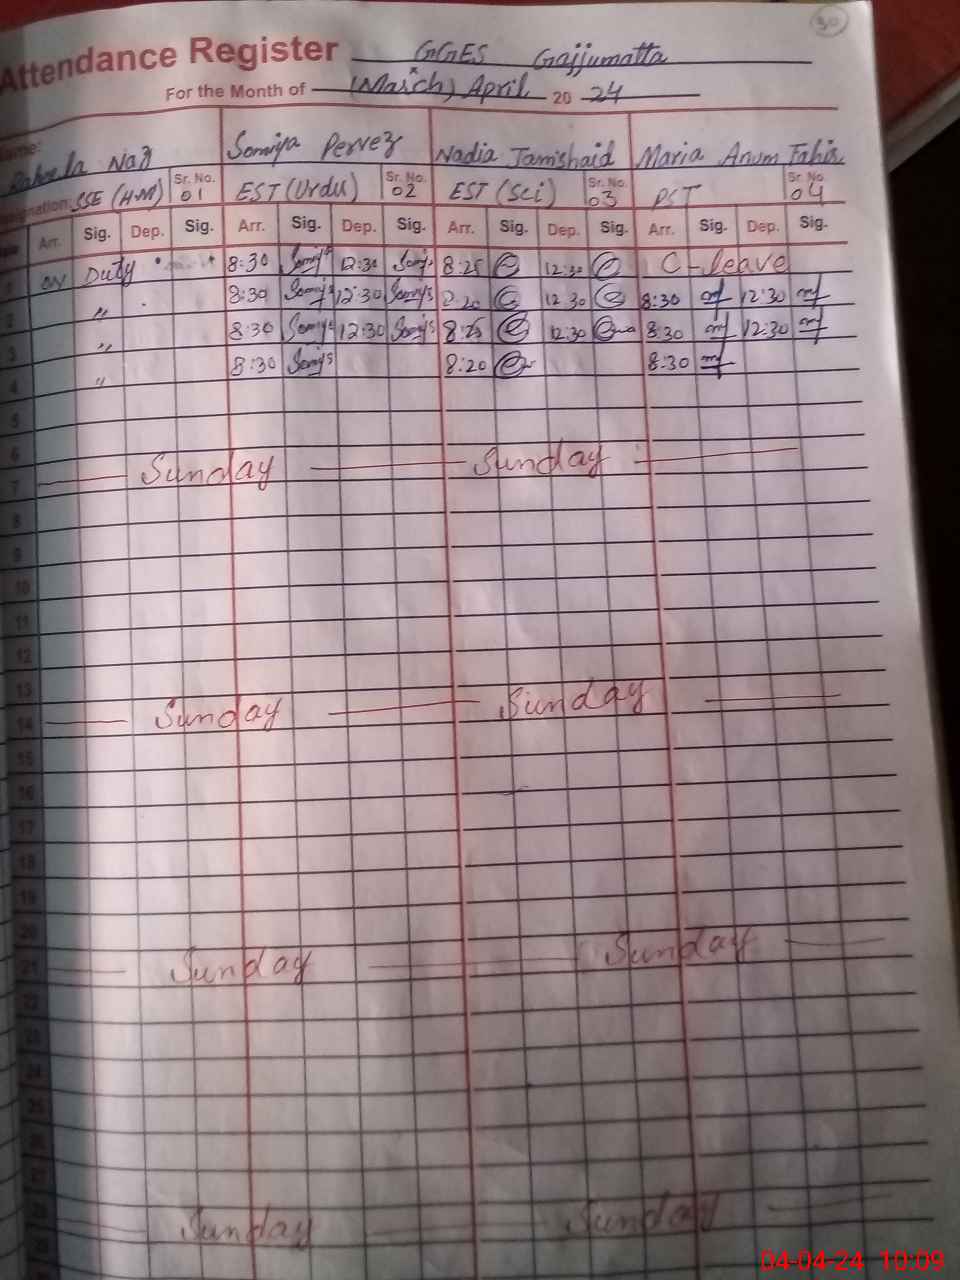 30
Attendance Register GGES Gajjumatta
For the Month of (March) April 20 24
Name: Naz Somiya Pervez Nadia Jamshaid Maria Anum Tahir
Designation: SSE (H.M) Sr. No. 01 EST (Urdu) Sr. No. 02 EST (Sci) Sr. No. 03 PST Sr. No 04
Arr. Sig. Dep. Sig. Arr. Sig. Dep. Sig. Arr. Sig. Dep. Sig. Arr. Sig. Dep. Sig.
1 on Duty 8:30 12:30 8:25 12:30 C-leave
2 " 8:30 12:30 8:20 12:30 8:30 12:30
3 " 8:30 12:30 8:25 12:30 8:30 12:30
4 " 8:30 8:20 8:30
5
6
7 Sunday Sunday
8
9
10
11
12
13
14 Sunday Sunday
15
16
17
18
19
20
21 Sunday Sunday
22
23
24
25
26
27
28 Sunday Sunday
29
04-04-24 10:09